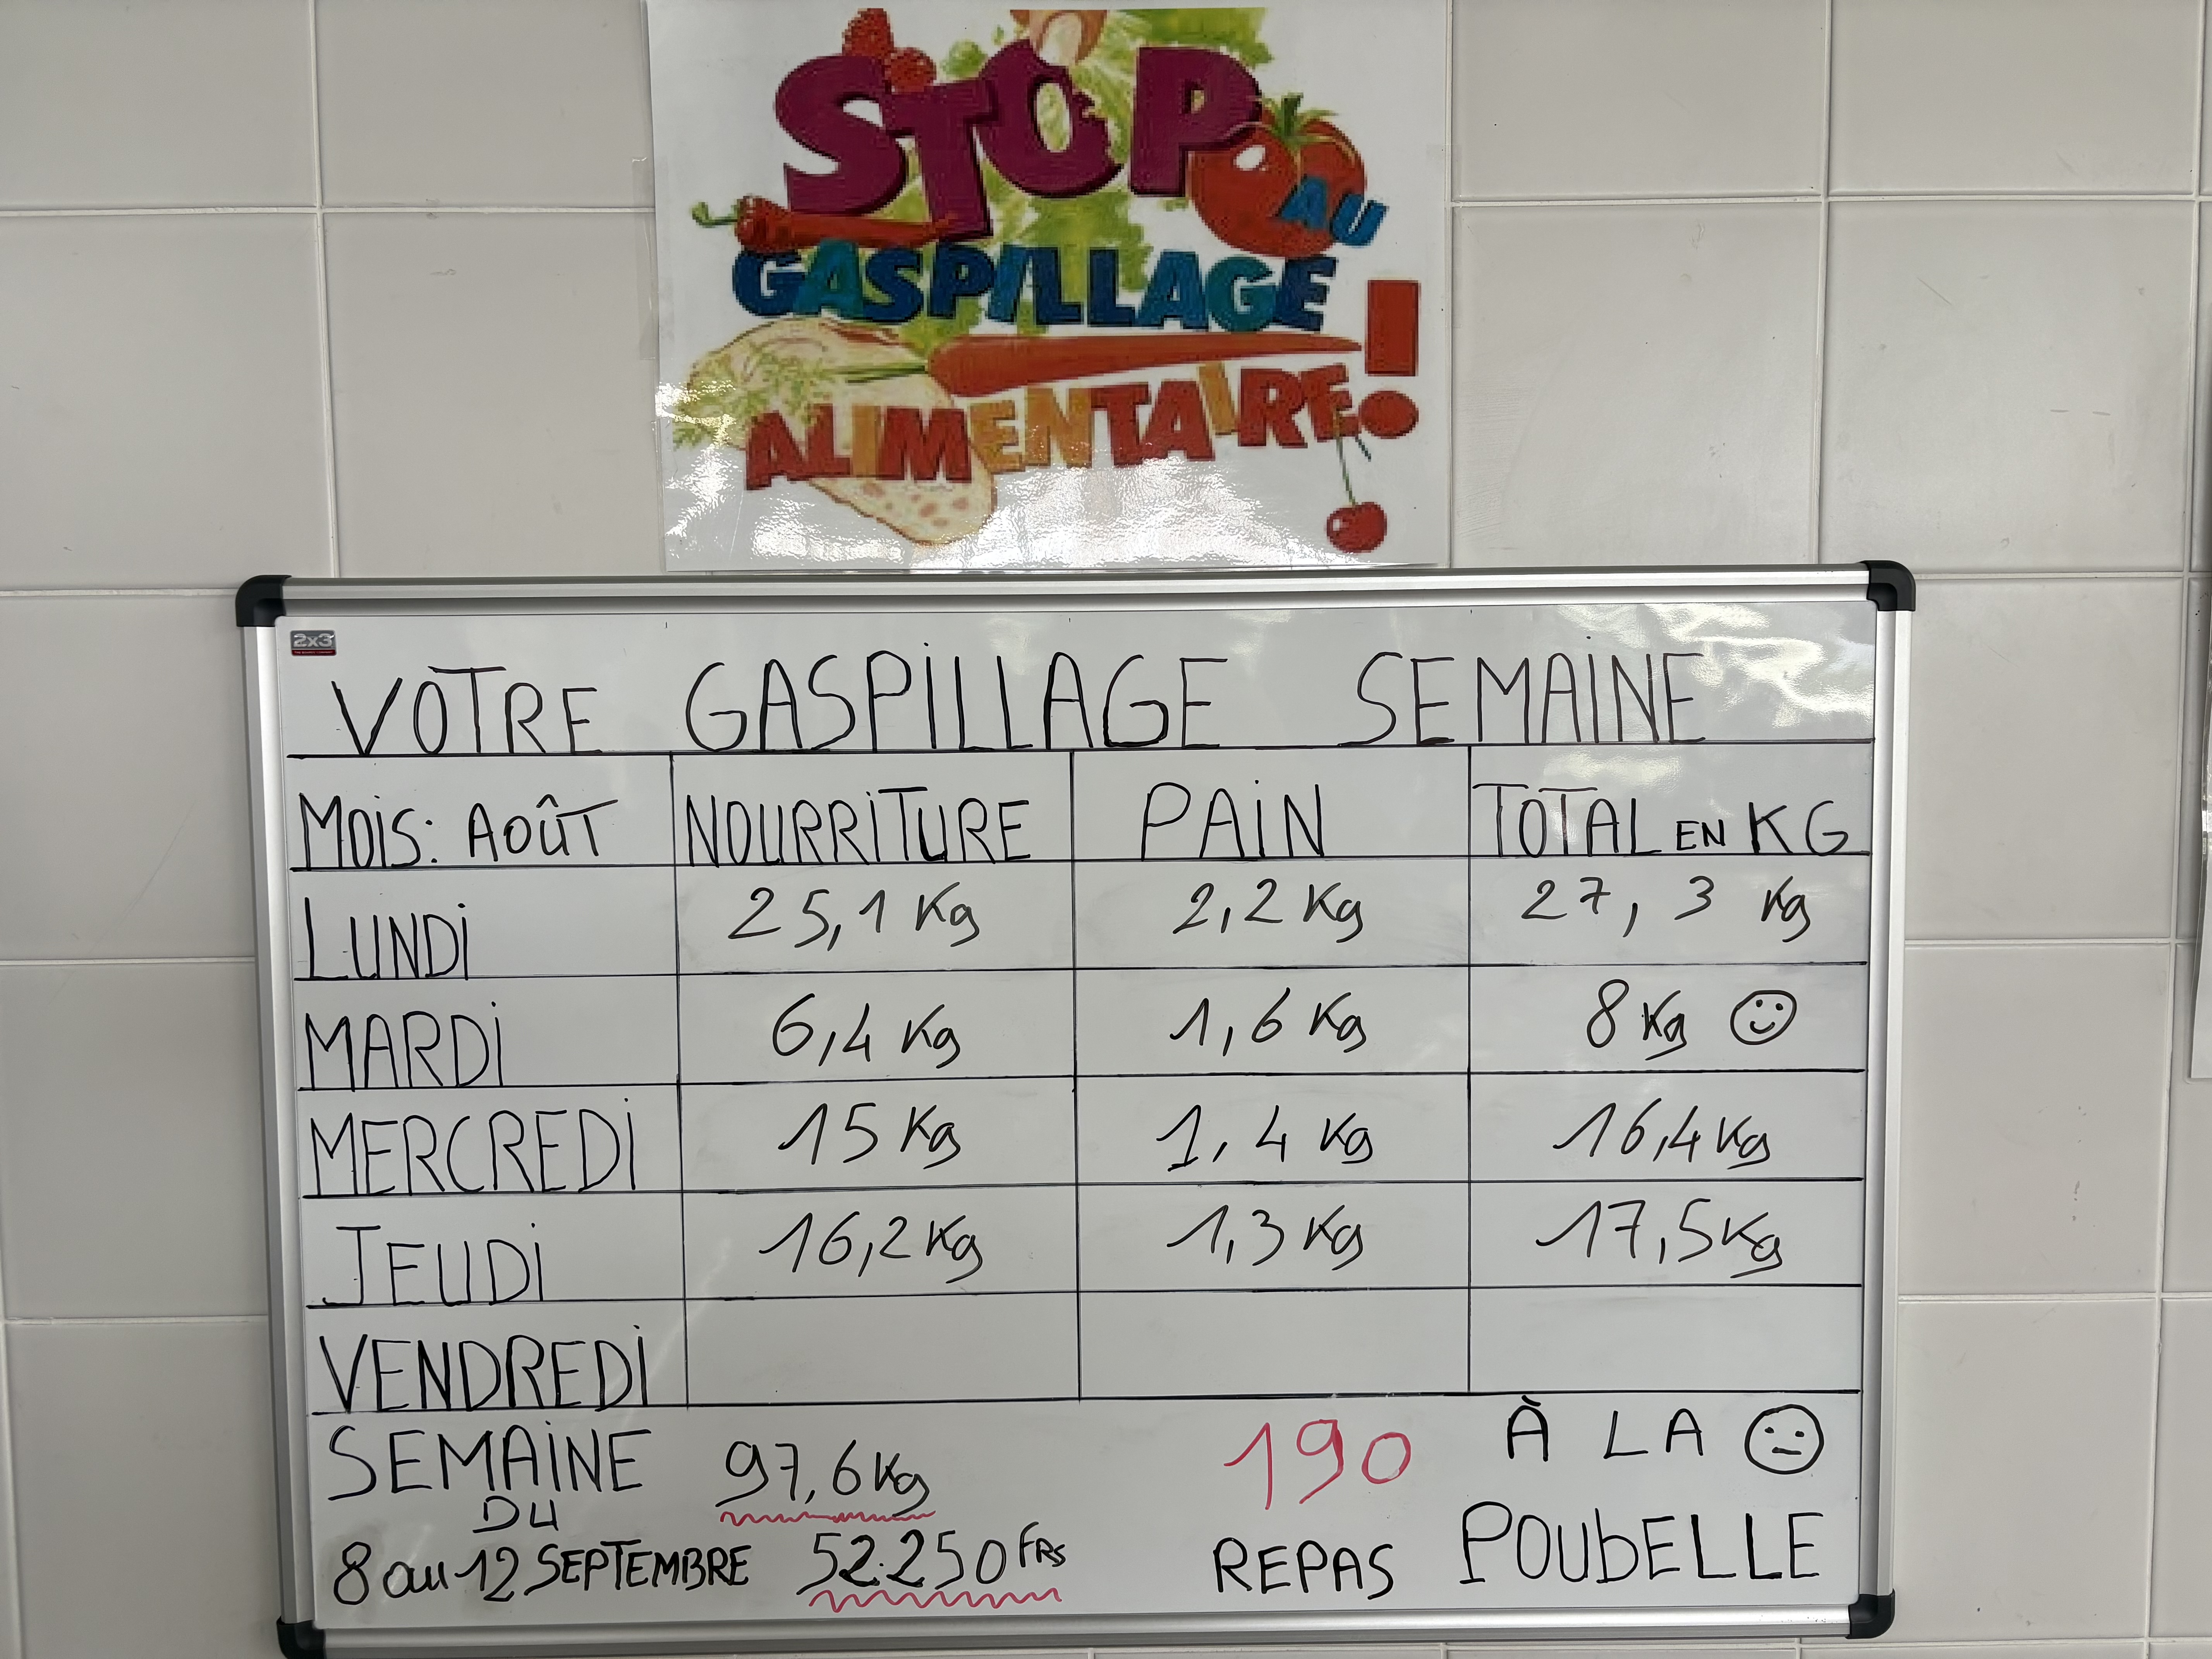 STOP
AU
GASPILLAGE
ALIMENTAIRE!
2x3
VOTRE GASPILLAGE SEMAINE
MOIS: AOÛT NOURRITURE PAIN TOTAL EN KG
LUNDI 25,1 Kg 2,2 Kg 27,3 Kg
MARDI 6,4 Kg 1,6 Kg 8 Kg
MERCREDI 15 Kg 1,4 Kg 16,4 Kg
JEUDI 16,2 Kg 1,3 Kg 17,5 Kg
VENDREDI
SEMAINE 97,6 Kg 190 À LA
DU
8 au 12 SEPTEMBRE 52.250 FRS REPAS POUbELLE